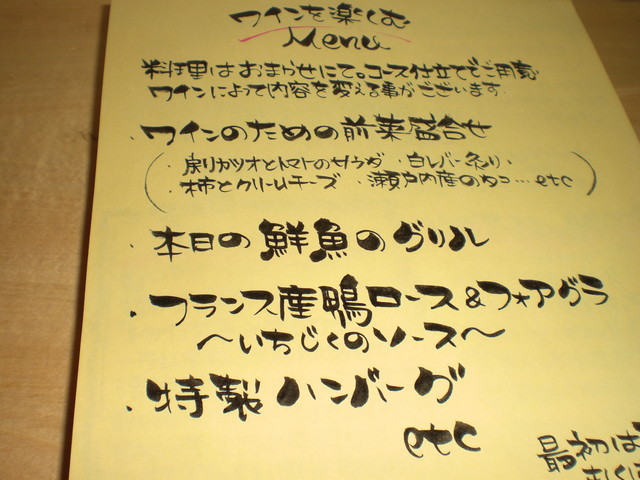 ワインを楽しむ
Menu
料理はおまかせにて。コース仕立てでご用意
ワインによって内容を変える事がございます.
・ワインのための前菜盛合せ
(・戻りガツオとトマトのサラダ ・白レバー炙り・
・柿とクリームチーズ ・瀬戸内産のタコ…etc)
・本日の鮮魚のグリル
・フランス産鴨ロース&フォアグラ
～いちじくのソース～
・特製ハンバーグ
etc
最初は